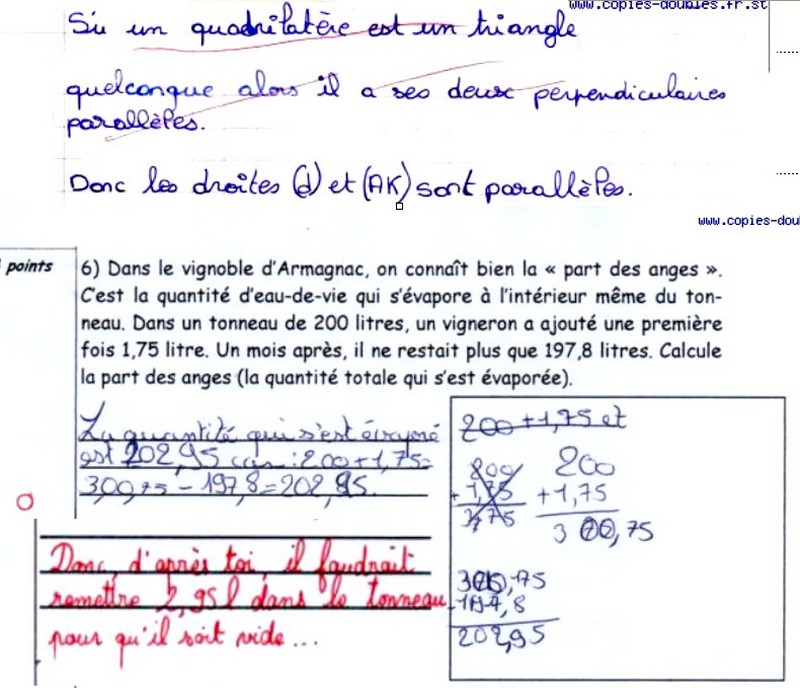 www.copies-doubles.fr.st
Si un quadrilatère est un triangle
quelconque alors il a ses deux perpendiculaires
parallèles.
Donc les droites (d) et (AK) sont parallèles.
www.copies-dou
points
6) Dans le vignoble d'Armagnac, on connaît bien la « part des anges ».
C'est la quantité d'eau-de-vie qui s'évapore à l'intérieur même du ton-
neau. Dans un tonneau de 200 litres, un vigneron a ajouté une première
fois 1,75 litre. Un mois après, il ne restait plus que 197,8 litres. Calcule
la part des anges (la quantité totale qui s'est évaporée).
La quantité qui s'est
est 202,95 car : 200+1,75=
300,75 - 197,8 = 202,95.
0
Donc, d'après toi, il faudrait
remettre 2,95l dans le tonneau
pour qu'il soit vide...
200 + 1,75 et
200
+ 1,75
200
+ 1,75
300,75
300,75
- 197,8
202,95